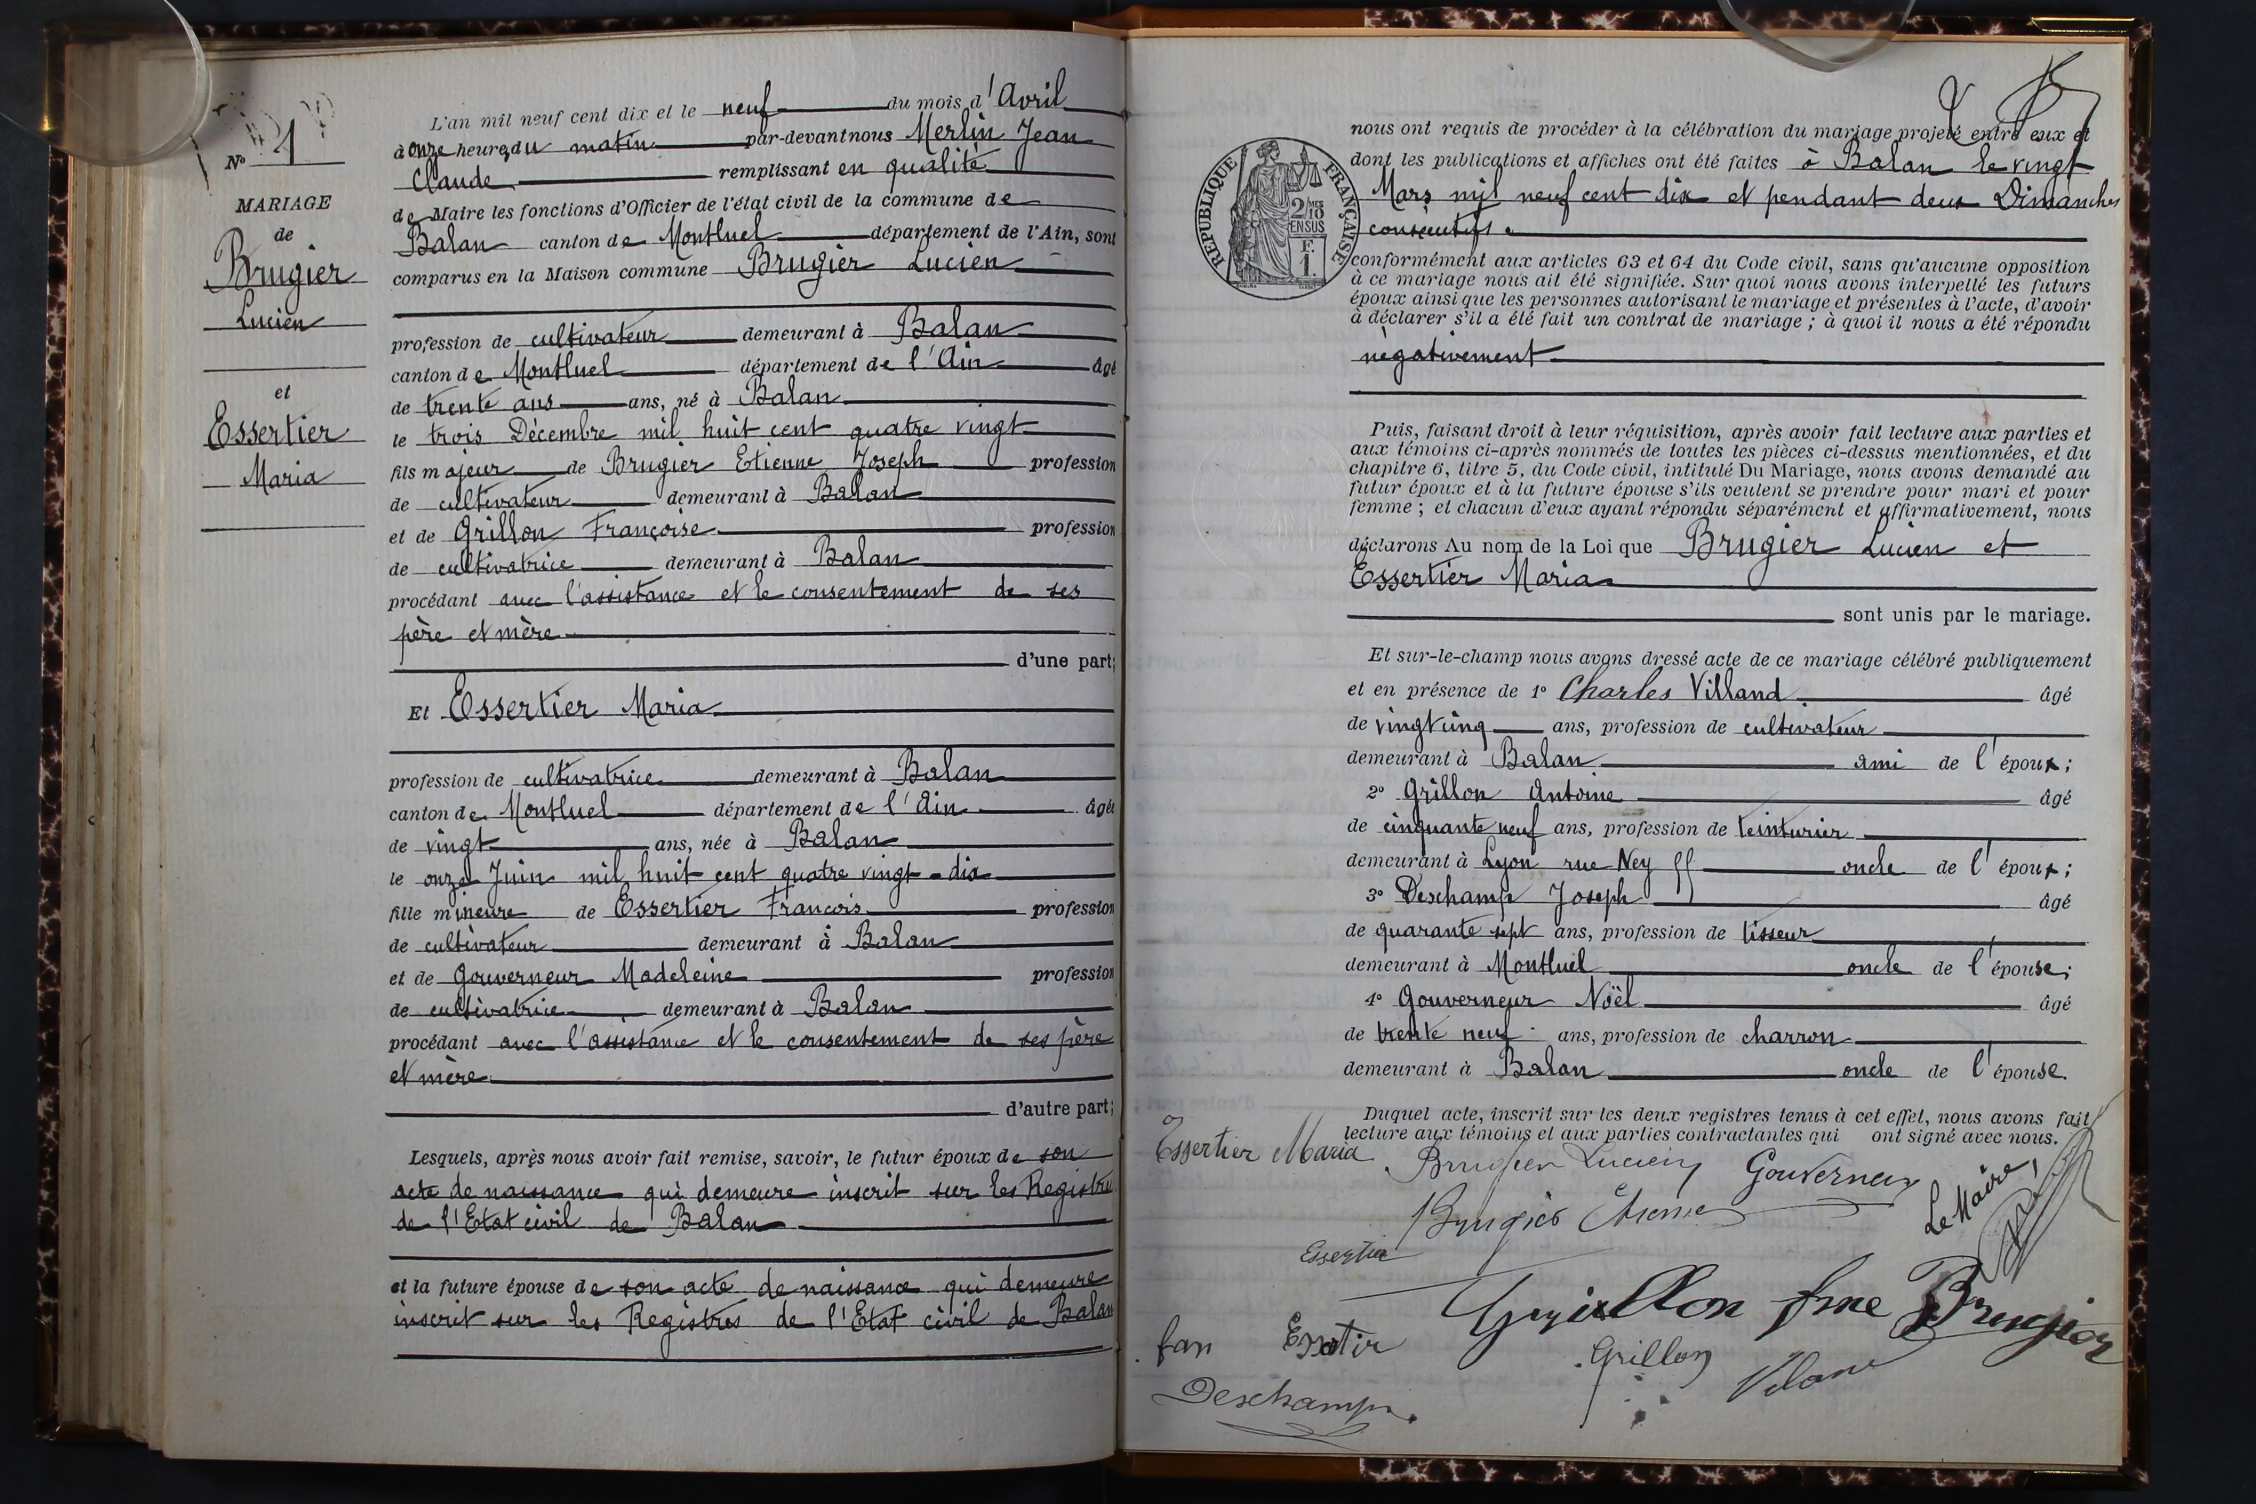 Nº 1
MARIAGE
de
Brugier
Lucien
et
Essertier
Maria
L'an mil neuf cent dix et le neuf du mois d'Avril
à onze heures du matin par-devant nous Merlin Jean
Claude remplissant en qualité
de Maire les fonctions d'Officier de l'état civil de la commune de
Balan canton de Montluel département de l'Ain, sont
comparus en la Maison commune Brugier Lucien
profession de cultivateur demeurant à Balan
canton de Montluel département de l'Ain âgé
de trente ans ans, né à Balan
le trois Décembre mil huit cent quatre vingt
fils majeur de Brugier Etienne Joseph profession
de cultivateur demeurant à Balan
et de Grillon Françoise profession
de cultivatrice demeurant à Balan
procédant avec l'assistance et le consentement de ses
père et mère
d'une part;
Et Essertier Maria
profession de cultivatrice demeurant à Balan
canton de Montluel département de l'Ain âgée
de vingt ans, née à Balan
le onze Juin mil huit cent quatre vingt-dix
fille mineure de Essertier François profession
de cultivateur demeurant à Balan
et de Gouverneur Madeleine profession
de cultivatrice demeurant à Balan
procédant avec l'assistance et le consentement de ses père
et mère
d'autre part;
Lesquels, après nous avoir fait remise, savoir, le futur époux de son
acte de naissance qui demeure inscrit sur les Registres
de l'Etat civil de Balan
et la future épouse de son acte de naissance qui demeure
inscrit sur les Registres de l'Etat civil de Balan
RÉPUBLIQUE FRANÇAISE
2/10
EN SUS
F.
1.
nous ont requis de procéder à la célébration du mariage projeté entre eux et
dont les publications et affiches ont été faites à Balan le vingt
Mars mil neuf cent dix et pendant deux Dimanches
consécutifs
conformément aux articles 63 et 64 du Code civil, sans qu'aucune opposition
à ce mariage nous ait été signifiée. Sur quoi nous avons interpellé les futurs
époux ainsi que les personnes autorisant le mariage et présentes à l'acte, d'avoir
à déclarer s'il a été fait un contrat de mariage ; à quoi il nous a été répondu
négativement
Puis, faisant droit à leur réquisition, après avoir fait lecture aux parties et
aux témoins ci-après nommés de toutes les pièces ci-dessus mentionnées, et du
chapitre 6, titre 5, du Code civil, intitulé Du Mariage, nous avons demandé au
futur époux et à la future épouse s'ils veulent se prendre pour mari et pour
femme ; et chacun d'eux ayant répondu séparément et affirmativement, nous
déclarons Au nom de la Loi que Brugier Lucien et
Essertier Maria
sont unis par le mariage.
Et sur-le-champ nous avons dressé acte de ce mariage célébré publiquement
et en présence de 1º Charles Villand âgé
de vingt cinq ans, profession de cultivateur
demeurant à Balan ami de l'époux;
2º Grillon Antoine âgé
de cinquante neuf ans, profession de teinturier
demeurant à Lyon rue Ney oncle de l'époux;
3º Deschamp Joseph âgé
de quarante sept ans, profession de tisseur
demeurant à Montluel oncle de l'épouse;
4º Gouverneur Noël âgé
de trente neuf ans, profession de charron
demeurant à Balan oncle de l'épouse.
Duquel acte, inscrit sur les deux registres tenus à cet effet, nous avons fait
lecture aux témoins et aux parties contractantes qui ont signé avec nous.
Essertier Maria Brugier Lucien Gouverneur
Le Maire,
Brugier Etienne
Essertier
fme Brugier
Grillon
Deschamp